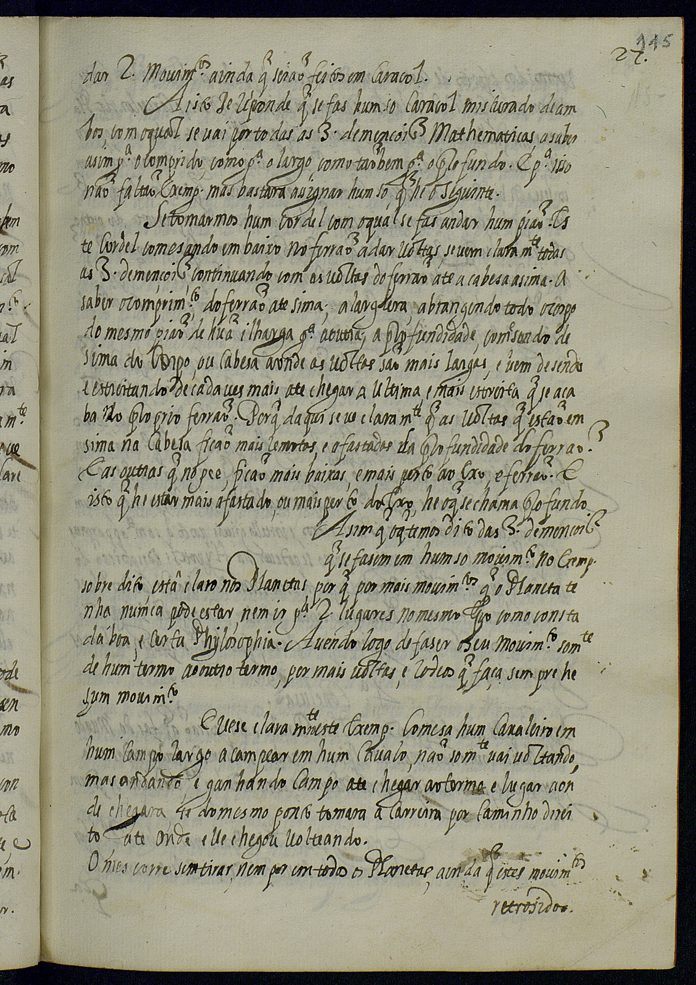 145
27.
dar 2. Movim.tos ainda q̃ seião feitos em Caracol.
A isto se Responde q̃ se fas hum so Caracol misturado de am
bos, com o qual se vai por todas as 3. demencois Mathematicas a saber
asim p.a o comprido, como p.a o largo, como tãobem p.a o profundo. E p.a isto
não faltão Exemp. mas bastara asignar hum so, q̃ he o siguinte.
Se tomarmos hum Cordel com o qual se fas andar hum pião. Es
te Cordel comesando em baixo no ferrão a dar voltas se vem clara m.te todas
as 3. demencois continuando com as voltas do ferrão ate a cabesa asima. A
saber o comprim.to do ferrão ate sima, a largura, abrangendo todo o corpo
do mesmo pião de hũa ilharga p.a outra, a profundidade, comesando de
sima do Corpo ou Cabesa aonde as voltas são mais largas, e vem desendo
e estreitando de cada ves mais ate chegar a ultima e mais estreita q̃ se aca
ba no proprio ferrão. Porq̃ daqui se ve claram.te q̃ as voltas q̃ estão em
sima na Cabesa ficão mais remotas, e afastadas da profundidade do ferrão.
E as outras q̃ no pee, ficão mais baixas, e mais perto ao Exo, e ferrão. E
isto q̃ he estar mais afastado, ou mais perto do Exo, he o q̃ se chama profundo.
Asim q̃ o q̃ temos dito das 3. demencois
q̃ se fasem em hum so movim.to no Exemp.
sobre dito està claro nos Planetas, por q̃ por mais movim.tos q̃ o Planeta te
nha nunca pode estar, nem ir p.a 2. lugares no mesmo tpo como consta
da boa, e certa Philosophia. Avendo logo de faser o seu movim.to som.te
de hum termo ao outro termo, por mais voltas, e rodeos q̃ faça, sempre he
hum movim.to
E vese clara m.te neste Exemp. Comesa hum Cavaleiro em
hum Campo largo a campear em hum Cavalo, não som.te vai voltando,
mas andando e ganhando Campo ate chegar ao termo e lugar aon
de chegara se do mesmo ponto tomara a Carreira por Caminho direi
to ate onde elle chegou volteando.
O mes corre sem tirar, nem por em todos os Planetas, ainda q̃ estes movim.tos
retrosidos.